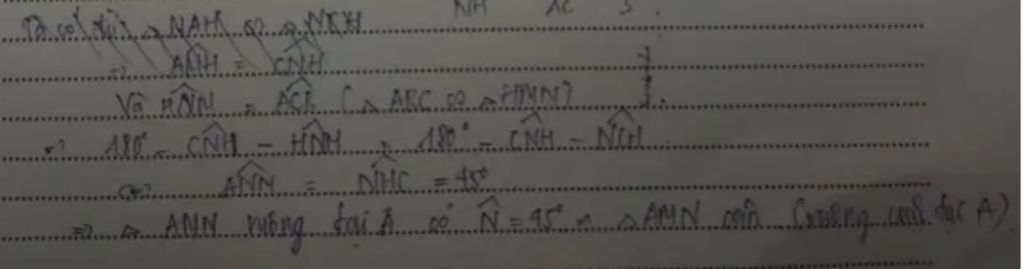 NH AC 3
Ta có △ NAH ∽ △ NCH
=> ANH = CNH
Và HNM = ACB (△ ABC ∽ △ HMN)
=> 180° - CNH - HNM = 180° - CNH - NCH
<=> ANM = NHC = 45°
=> △ AMN vuông tại A có N = 45° => △ AMN cân (vuông cân tại A)